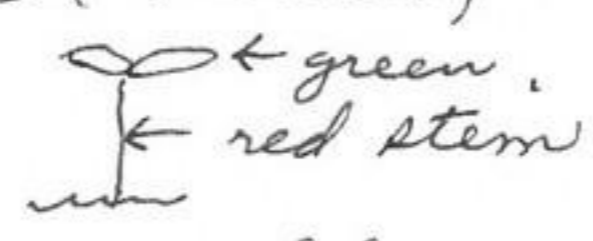 ← green.
← red stem